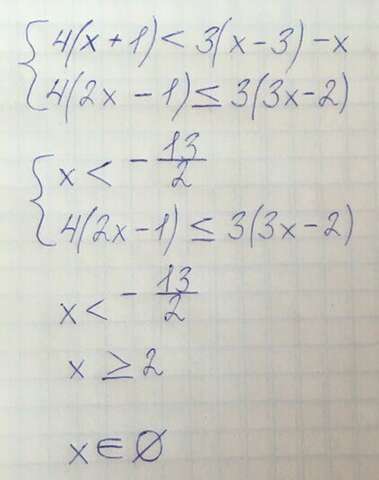 4(x+1) < 3(x-3) - x
4(2x - 1) ≤ 3(3x-2)
x < - 13/2
4(2x-1) ≤ 3(3x-2)
x < - 13/2
x ≥ 2
x ∈ Ø